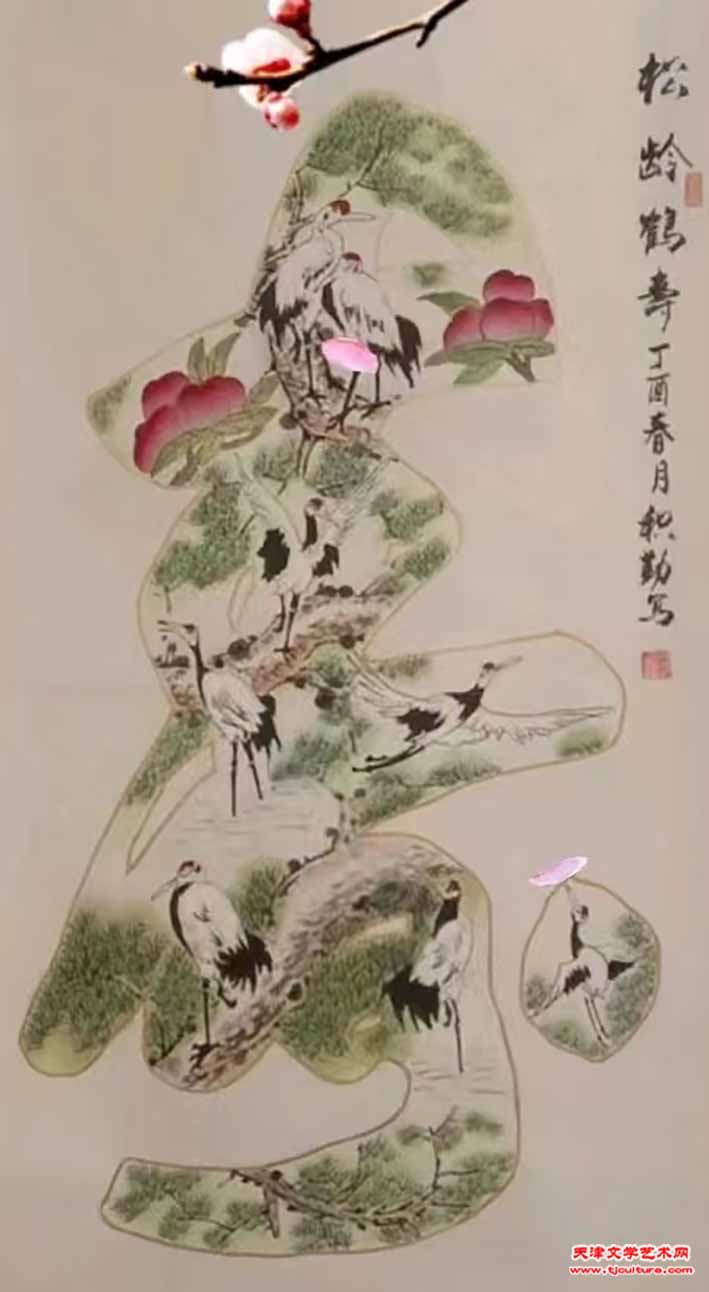 松龄鹤寿丁酉春月积勤写
天津文学艺术网
www.tjculture.com